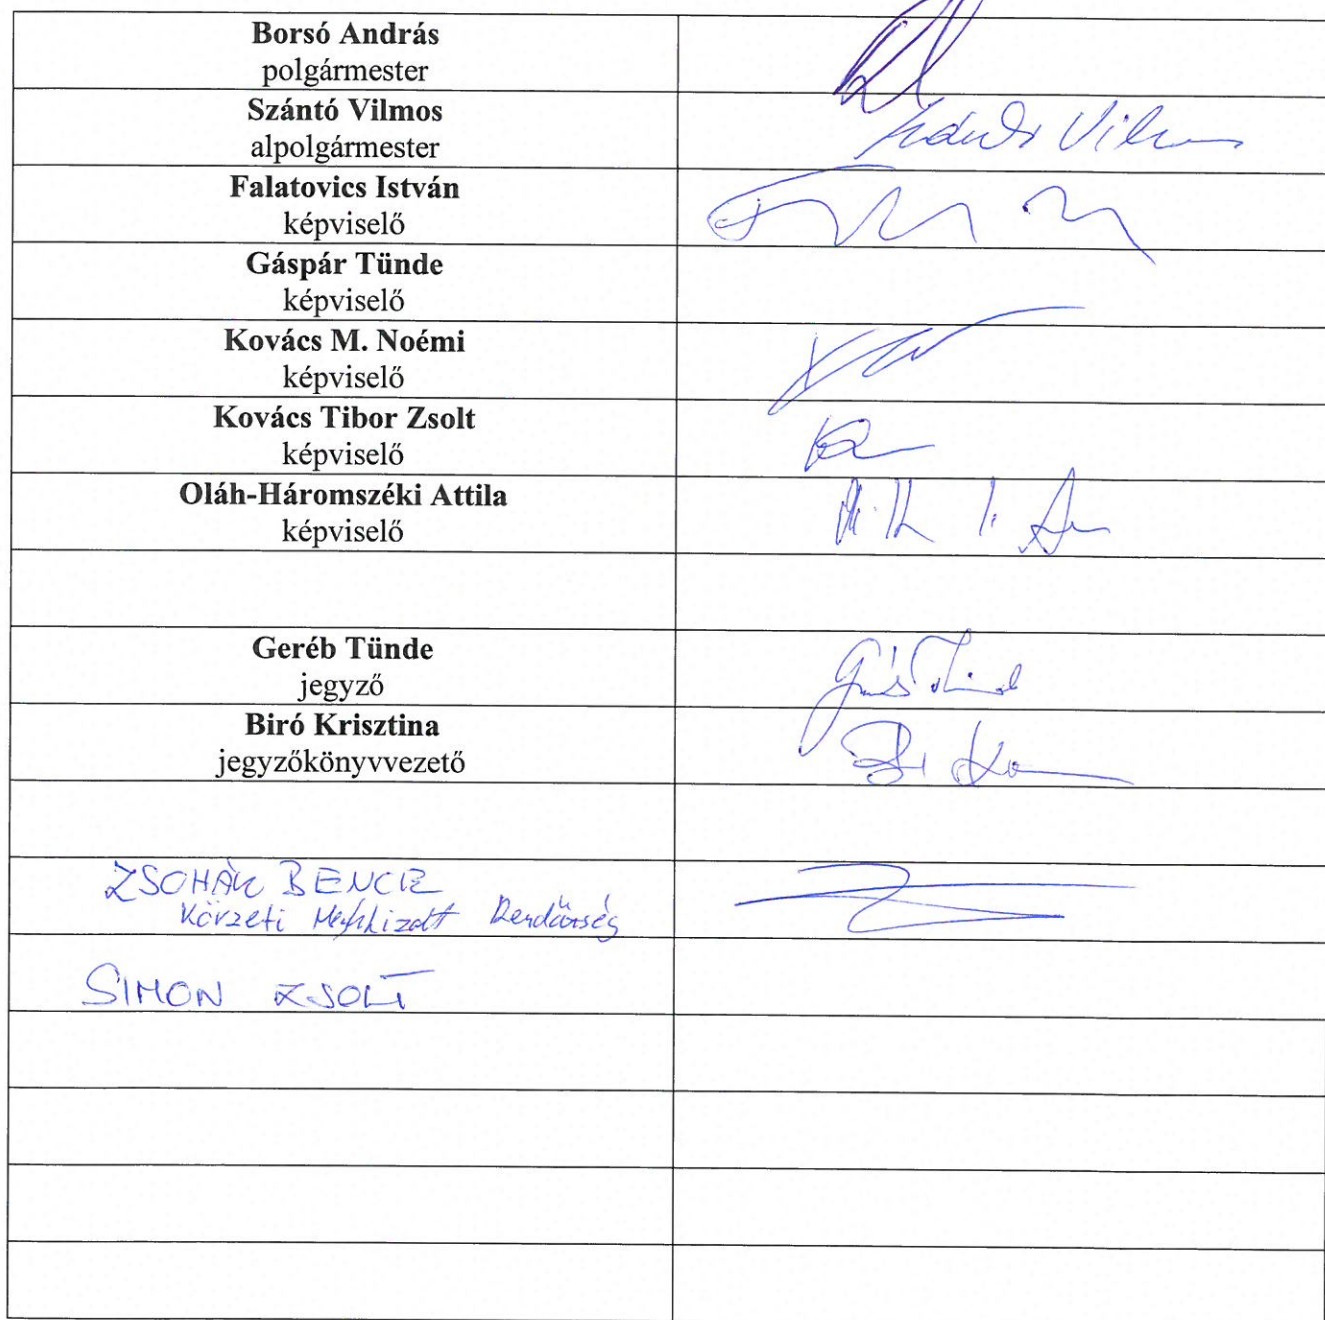 Borsó András
polgármester
Szántó Vilmos
alpolgármester
Szántó Vilmos
Falatovics István
képviselő
Gáspár Tünde
képviselő
Kovács M. Noémi
képviselő
Kovács Tibor Zsolt
képviselő
Oláh-Háromszéki Attila
képviselő
Geréb Tünde
jegyző
Biró Krisztina
jegyzőkönyvvezető
ZSOHÁR BENCE
Körzeti Megbízott Rendőrség
SIMON ZSOLT